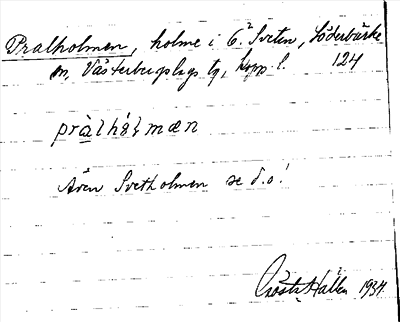 Pralholmen, holme i G:a Sveten, Söderbärke
sn, Västerbergslags tg, Kopp. l. 124
pràlhɷ́lmæn
Även Svetholmen se d.o!
Gösta Hallén 1934